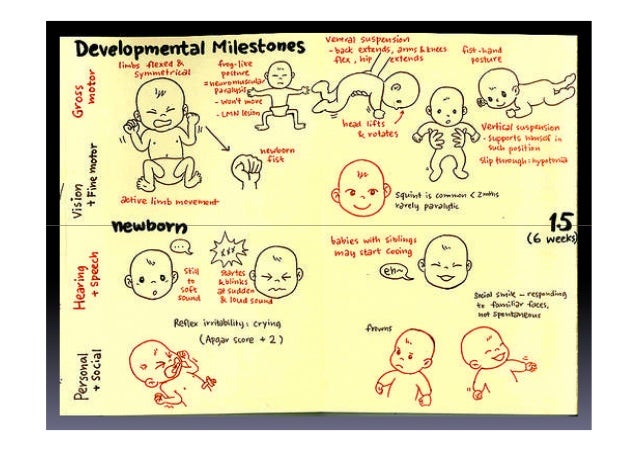 Developmental Milestones
Gross
motor
limbs flexed &
symmetrical
frog-like
posture
= neuromuscular
paralysis
- won't move
- LMN lesion
newborn
fist
active limb movement
ventral suspension
- back extends, arms & knees
flex, hip extends
head lifts
& rotates
fist-hand
posture
Vertical suspension
- supports himself in
such position
Slip through: hypotonia
Vision
+ Fine motor
Squint is common < 2mths
rarely paralytic
newborn
1.5
(6 weeks)
Hearing
+ Speech
...
Still
to
soft
sound
Startles
& blinks
at sudden
& loud sound
babies with siblings
may start cooing
eh~
Personal
+ Social
Reflex irritability: crying
(Apgar score + 2)
Social smile - responding
to familiar faces,
not spontaneous
frowns